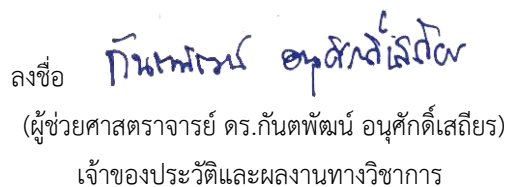 ลงชื่อ กันตพัฒน์ อนุศักดิ์เสถียร
(ผู้ช่วยศาสตราจารย์ ดร.กันตพัฒน์ อนุศักดิ์เสถียร)
เจ้าของประวัติและผลงานทางวิชาการ